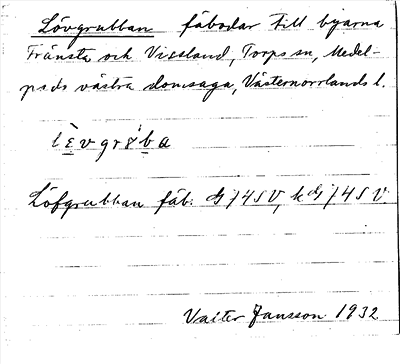 Lövgrubban fäbodar till byarna
Fränsta och Vissland, Torps sn, Medel-
pads västra domsaga, Västernorrlands l.
Löfgrubban fäb. G 74 SV, kG 74 SV.
Valter Jansson 1932